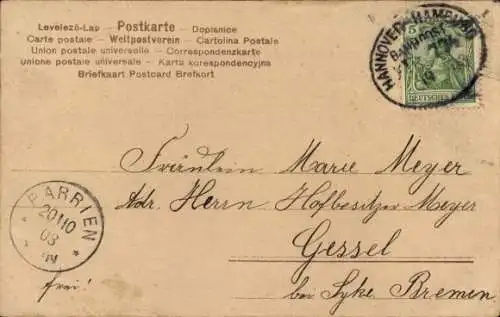 Levelezö-Lap — Postkarte — Dopisnice
Carte postale — Weltpostverein — Cartolina Postale
Union postale universelle — Correspondenzkarte
unione postale universale — Karta korespondencyjna
Briefkaart Postcard Brefkort
HANNOVER-HAMBURG
BAHNPOST
5
DEUTSCHES
Fräulein Marie Meyer
Adr. Herrn Hofbesitzer Meyer
Gessel
bei Syke Bremen
BARRIEN
20/10
03
frei!